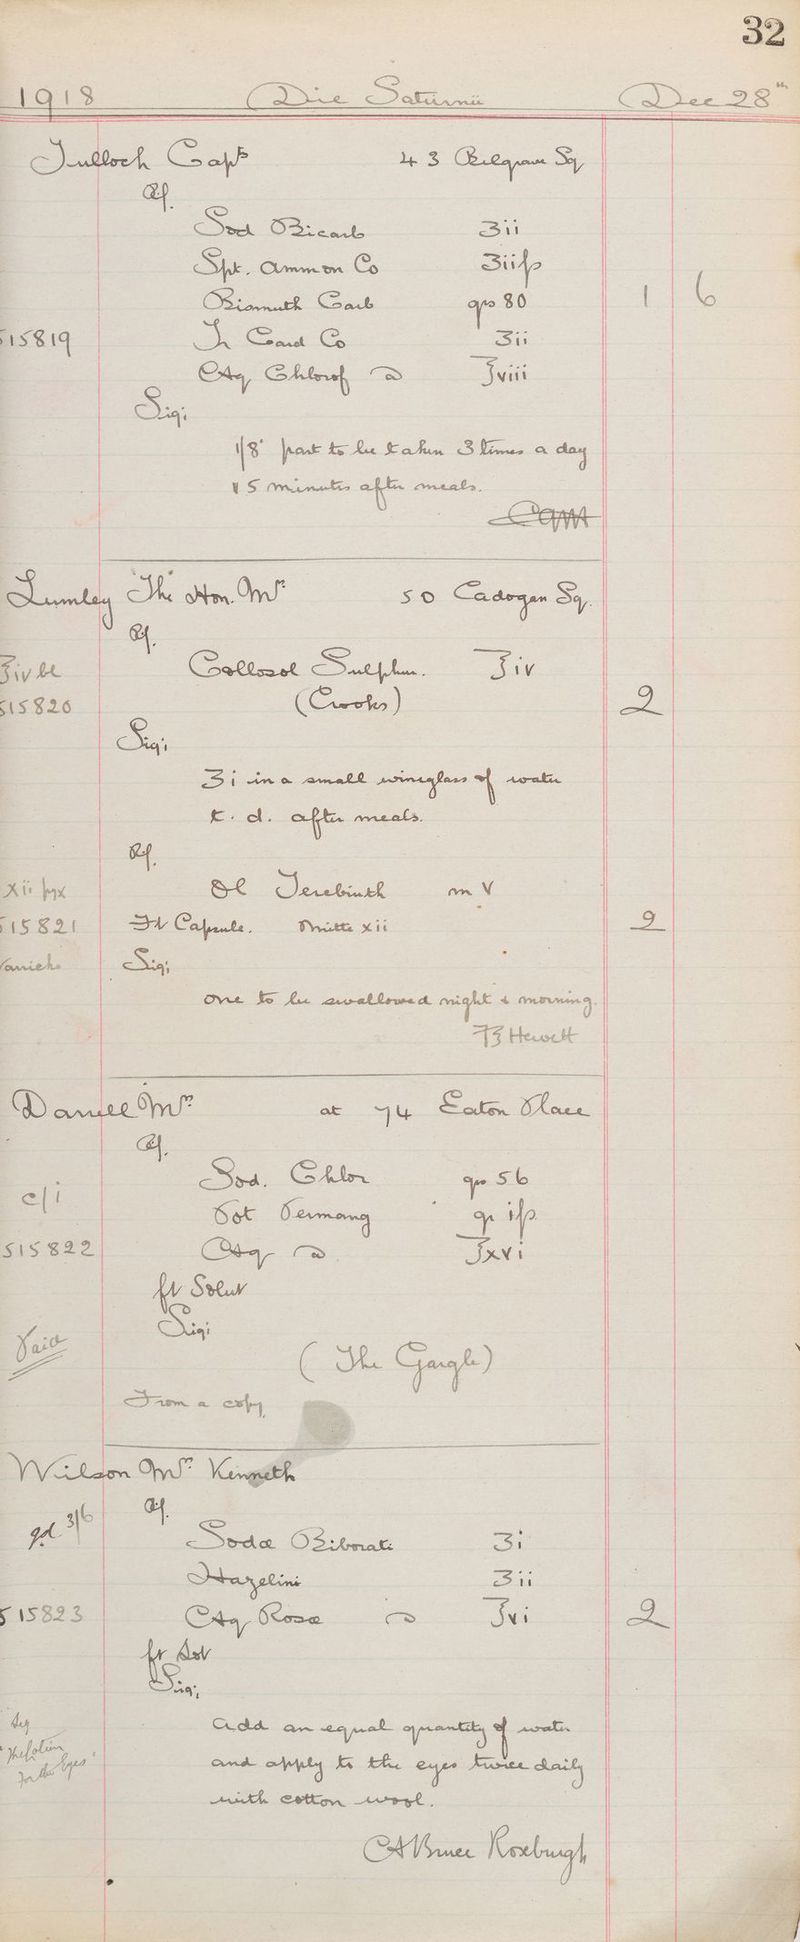 32
1918 Die Saturnii Dec 28th
Tulloch Capt 43 Belgrave Sq
Rx.
Sod Bicarb ʒii
Spt. Ammon Co ʒiiſs
Bismuth Carb grs 80 1 6
515819 Tr Card Co ʒii
Aq Chlorof a ℥viii
Sig:
1/8 part to be taken 3 times a day
15 minutes after meals.
Lumley The Hon. Mrs 50 Cadogan Sq.
Rx.
℥iv bl Collosol Sulphur. ℥iv
515820 (Crooks) 2
Sig:
ʒi in a small wineglass of water
t. d. after meals.
Rx.
xii Ol Terebinth m V
515821 Ft Capsule. Mitte xii 2
Sig:
One to be swallowed night & morning.
Hewett
Darrell Mrs at 74 Eaton Place
Rx.
c/i Sod. Chlor grs 56
Pot Permang gr iſs
515822 Aq a ℥xvi
ft Solut
Sig:
Paid (The Gargle)
From a copy,
Wilson Mrs Kenneth
Rx.
gd 3/6 Sodæ Biborati ʒi
Hazelini ʒii
515823 Aq Rosæ a ℥vi 2
ft Sol
Sig:
Add an equal quantity of water
"The Lotion and apply to the eyes twice daily
for the Eyes" with cotton wool.
A Bruce Roxburgh